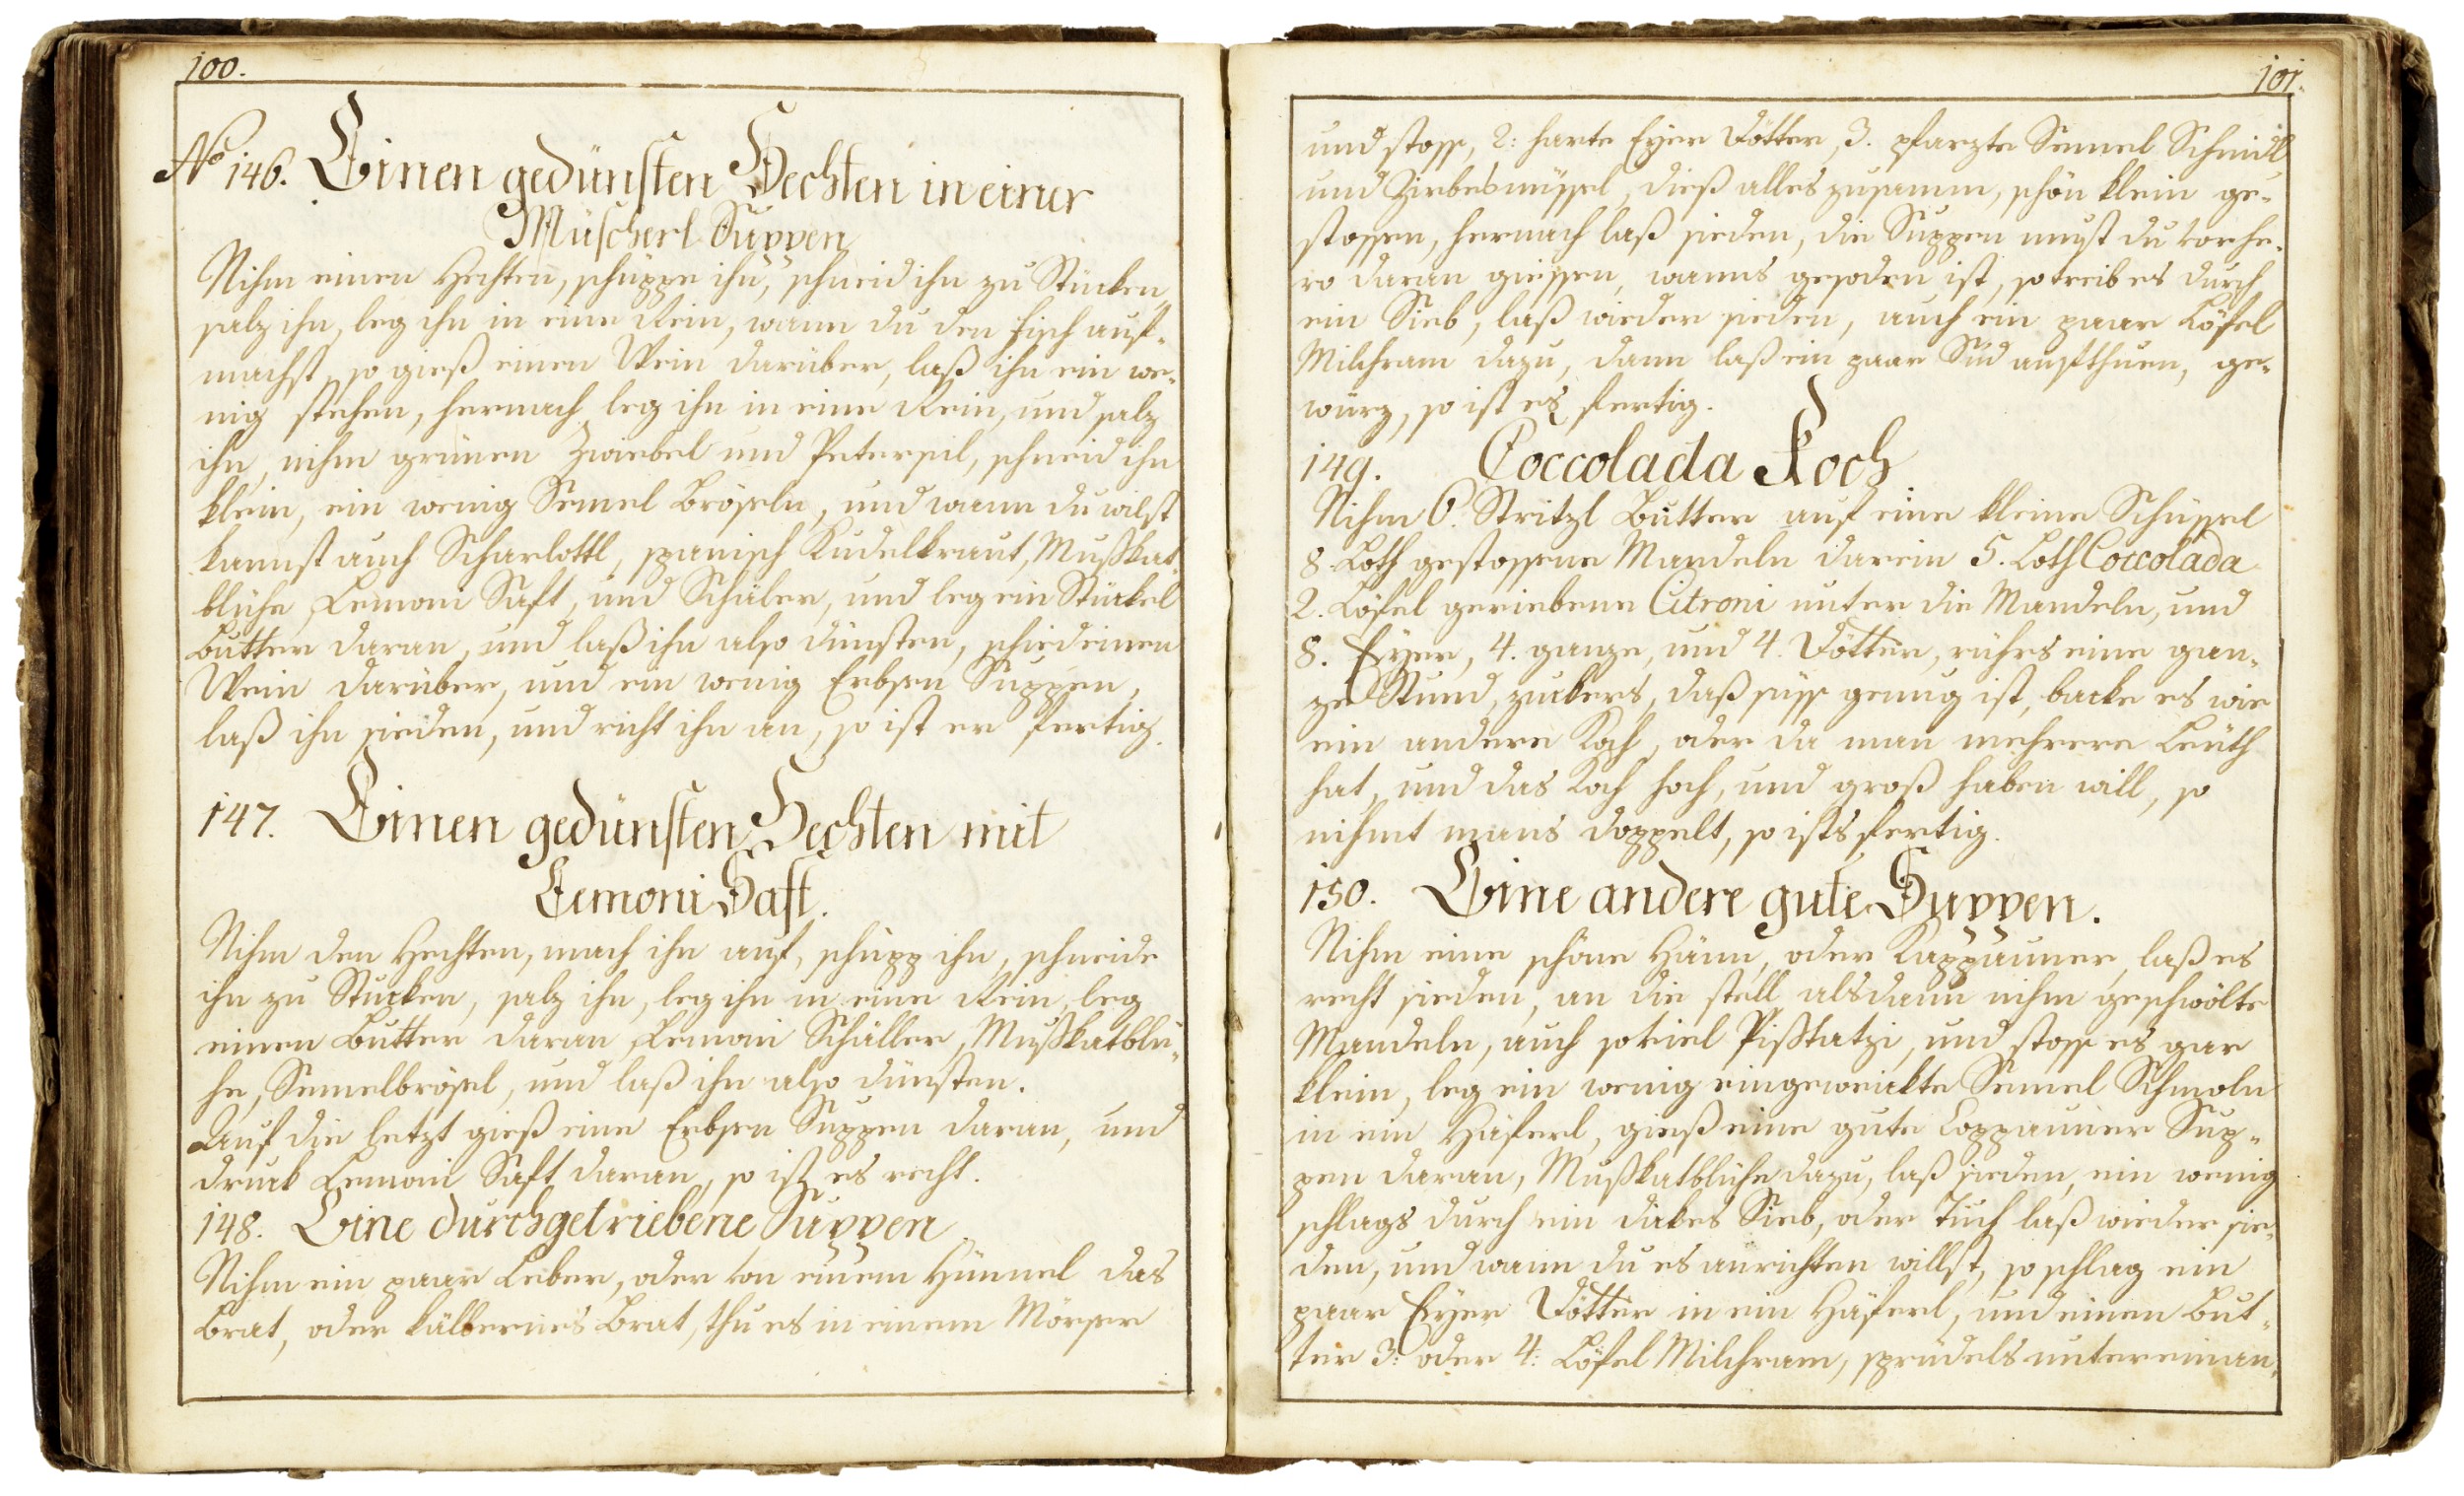 100.
No 146. Einen gedünsten Hechten in einer
Müscherl Suppen
Nihm einen Hechten, schüppe ihn, schneid ihn zu Stücken,
salz ihn, leg ihn in eine Rein, wann du den Fisch auf-
machst, so gieß einen Wein darüber, laß ihn ein we-
nig stehen, hernach leg ihn in eine Rein, und salz
ihn, nihm grünen Zwiebel und Petersil, schneid ihn
klein, ein wenig Semel Bröseln, und wann du wilst
kannst auch Scharlottl, spanisch Kudelkraut, Mußkat-
blühe, Lemoni Saft, und Schäler, und leg ein Stückel
Butter daran, und laß ihn also dünsten, schied einen
Wein darüber, und ein wenig Erbsen Suppen,
laß ihn sieden, und richt ihn an, so ist er fertig.
147. Einen gedünsten Hechten mit
Lemoni Saft.
Nihm den Hechten, mach ihn auf, schüpp ihn, schneide
ihn zu Stucken, salz ihn, leg ihn in eine Rein, leg
einen Butter daran, Lemoni Schäller, Mußkatblü-
he, Semelbrösel, und laß ihn also dünsten.
Auf die letzt gieß eine Erbsen Suppen daran, und
druck Lemoni Saft daran, so ist es recht.
148. Eine durchgetriebene Suppen
Nihm ein paar Leber, oder von einem Hünnel das
Brat, oder kälbernes Brat, thu es in einem Mörser
101.
und stoss, 2: harte Eyer Dötter, 3. pfarzte Semel Schnidl
und Zirbesnüssel, dieß alles zusamm, schön klein ge-
stossen, hernach laß sieden, die Suppen must du vorhe-
ro daran giessen, wanns gesoden ist, so treib es durch
ein Sieb, laß wieder sieden, auch ein paar Löfel
Milchram dazu, dann laß ein paar Sud aufthuen, ge-
würz, so ist es fertig.
149. Coccolada Koch
Nihm 6. Stritzl Butter auf eine kleine Schüssel
8. Loth gestossene Mandeln darein 5. Loth Coccolada
2. Löfel geriebene Citroni unter die Mandeln, und
8. Eyer, 4. ganze, und 4. Dötter, rührs eine gan-
ze Stund, zuckers, daß süss genug ist, backe es wie
ein andere Koch, oder da man mehrere Leüth
hat, und das Koch hoch, und groß haben will, so
nihmt mans doppelt, so ists fertig.
150. Eine andere gute Suppen.
Nihm eine schöne Hänn, oder Kappauner, laß es
recht sieden, an die stell alsdann nihm geschwölte
Mandeln, auch soviel Pißtatzi, und stoss es gar
klein, leg ein wenig eingeweickte Semel Schmoln
in ein Häferl, gieß eine gute Coppauner Sup-
pen daran, Mußkatblühe dazu, laß sieden, ein wenig
schlags durch ein dickes Sieb, oder Tuch laß wieder sie-
den, und wann du es anrichten willst, so schlag ein
paar Eyer Dötter in ein Häferl, und einen But-
ter 3: oder 4: Löfel Milchram, sprüdels untereinan-